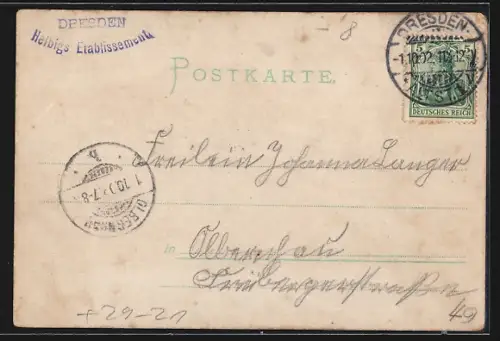 DRESDEN
Helbigs Etablissement
- 8
DRESDEN
-1.10.02.11-12V.
5 5
DEUTSCHES REICH
POSTKARTE.
Freilein Johanna Langer
OLBERNHAU
1.10.02.7-8
b
in Olbernhau
Freibergerstrasse
+29-21
49